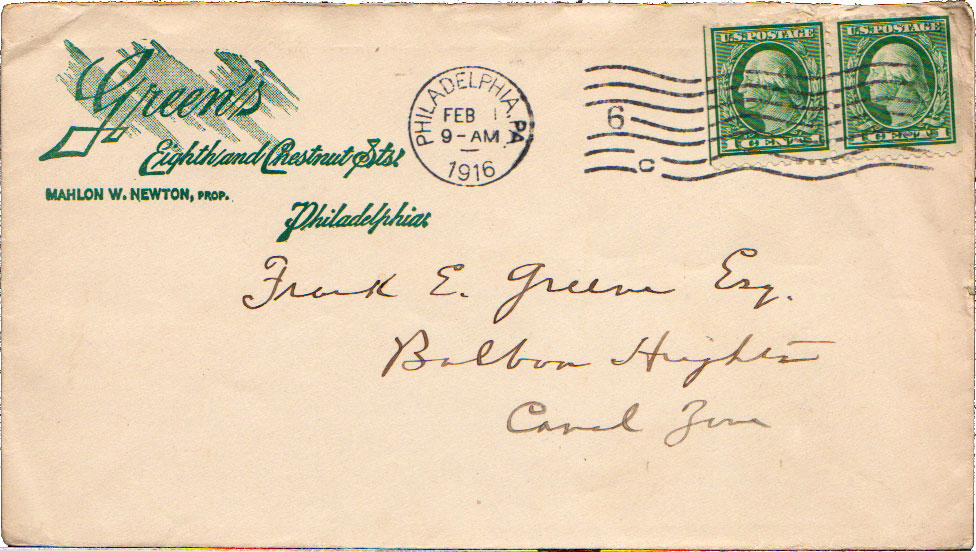 Green's
Eighth and Chestnut Sts.
MAHLON W. NEWTON, PROP.
Philadelphia.
PHILADELPHIA, PA.
FEB 1
9-AM
1916
6
C
U.S. POSTAGE
1 CENT 1
U.S. POSTAGE
1 CENT 1
Frank E. Greene Esq.
Balboa Heights
Canal Zone